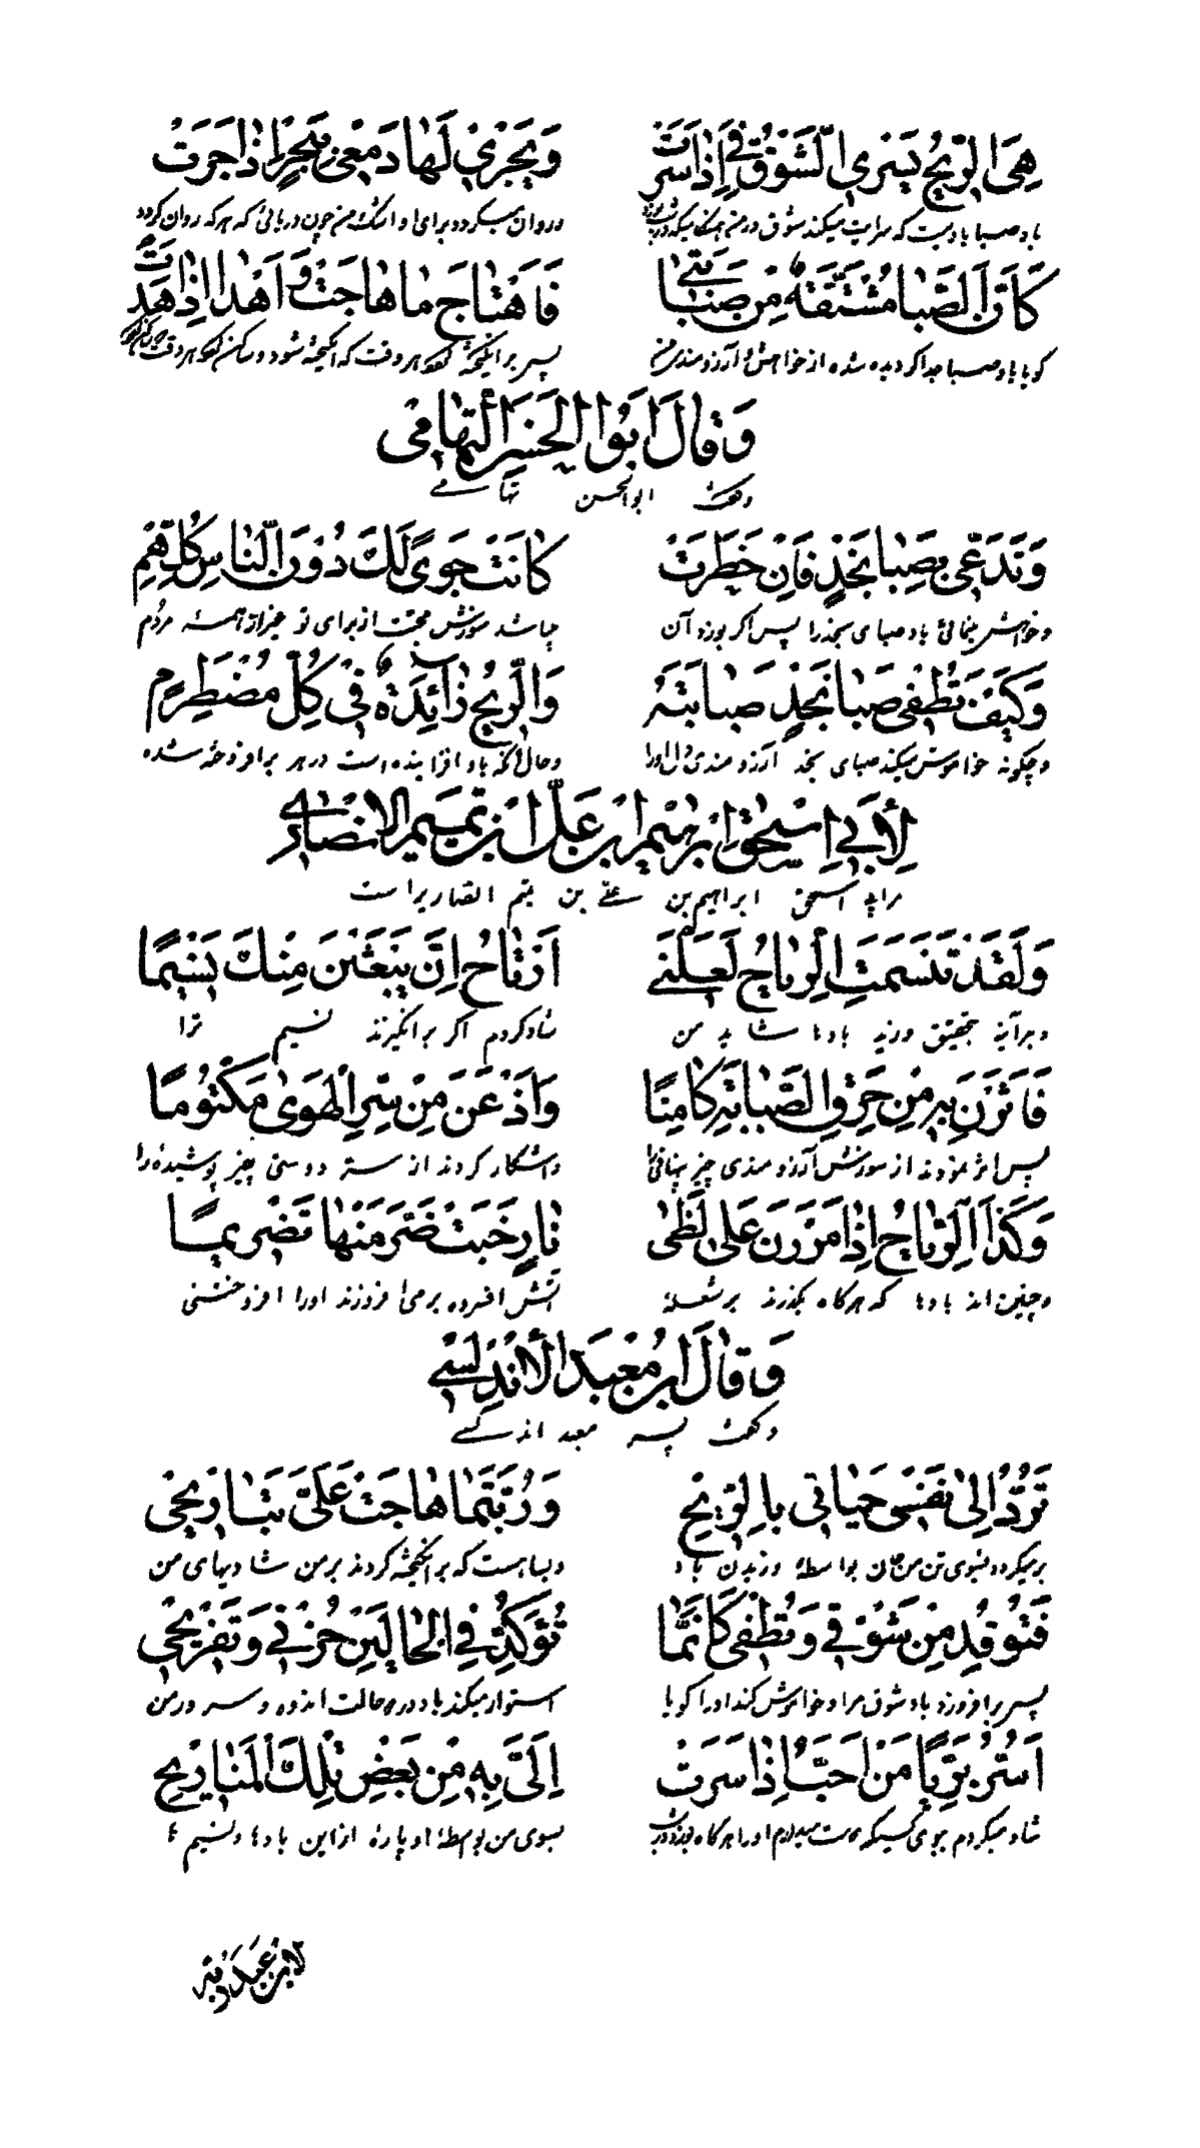 هِيَ الرِّيحُ يَسْرِي الشَّوْقُ فِيَّ إِذَا سَرَتْ وَيَجْرِي لَهَا دَمْعِي بِبَحْرٍ إِذَا جَرَتْ
باد صبا بادیست که سرایت میکند شوق در من و روان میگردد برای او اشک من چون دریائی که هرگه روان گردد
كَأَنَّ الصَّبَا مُشْتَقَّةٌ مِنْ صَبَابَتِي فَاهْتَاجَ مَا هَاجَتْ وَاَهْدَا إِذَا هَدَتْ
گویا باد صبا جدا گردیده شده از خواهش آرزومندی من پس برانگیخته هر وقت که انگیخته شود و
وَقَالَ اَبُو الْحَسَنِ التِّهَامِي
و گفت ابوالحسن تهامے
وَتَدَّعِي بِصَبَا نَجْدٍ فَاِنْ خَطَرَتْ كَانَتْ جَوًى لَكَ دُوْنَ النَّاسِ كُلِّهِمِ
و خواهش بنمائی باد صبای نجد را پس اگر بوزد آن باشد سوزش محبت از برای تو جز از همه مردم
وَكَيْفَ تُطْفِي صَبَا نَجْدٍ صَبَابَتَهُ وَالرِّيحُ زَائِدَةٌ فِي كُلِّ مُضْطَرِمِ
و چگونه خاموش میکند صبای نجد آرزومندی دل او را و حال آنکه باد افزاینده است در هر برافروخته شده
لِأَبِي اِسْحٰقَ اِبْرٰهِيمَ ابْنِ عَلِيِّ ابْنِ تَمِيمِ الْاَنْصَارِي
ابراهیم بن علے بن تمیم انصاری راست
وَلَقَدْ تَنَسَّمَتِ الرِّيَاحُ لَعَلَّنِي اَرْتَاحُ اِنْ يَبْعَثْنَ مِنْكَ نَسِيْمًا
و هرآینه بتحقیق وزید بادها شاید من شاد گردم اگر برانگیزند نسیم ترا
فَاَثَرْنَ بِهِ مِنْ حَرْقِ الصَّبَابَةِ كَامِنًا وَاَذَعْنَ مِنْ سِرِّ الْهَوٰى مَكْتُوْمًا
پس اثر نمودند از سوزش آرزومندی چیز پنهانی را و آشکار کردند از سر دوستی چیز پوشیده را
وَكَذَا الرِّيَاحُ اِذَا مَرَرْنَ عَلٰى لَظًى نَارٍ خَبَتْ ضَرَّمْنَهَا تَضْرِيْمًا
و چنین اند بادها که هرگاه بگذرند بر شعله آتش افسرده برمی افروزند او را افروختنی
وَقَالَ ابْنُ مَعْبَدِ الْاَنْدَلُسِي
و گفت پسر معبد اندلسے
تَرُدُّ اِلٰى نَفْسِي حَيَاتِي بِالرِّيحِ وَرُبَّتَمَا هَاجَتْ عَلَيَّ تَبَارِيحِي
برمیگردد بسوی تن من جان بواسطهٔ وزیدن باد و بسا هست که برانگیخته کردند بر من شادیهای من
فَتُوْقِدُ مِنْ شَوْقِي وَتُطْفِي كَاَنَّمَا تُؤَكِّدُ فِي الْحَالَيْنِ حُزْنِي وَتَفْرِيحِي
پس برافروزد باد شوق مرا و خاموش کند او را گویا استوار میکند باد در دو حالت اندوه و سرور من
اَسُرُّ بِرَيَّا مَنْ اُحِبُّ اِذَا سَرَتْ اِلَيَّ بِهِ مِنْ بَعْضِ تِلْكَ الْمَنَادِيحِ
شاد میگردم ببوی کسیکه دوست میدارم او را هرگاه بوزد بسوی من بواسطهٔ او پارهٔ از این بادها و نسیم ها
لابن عبد ربّه